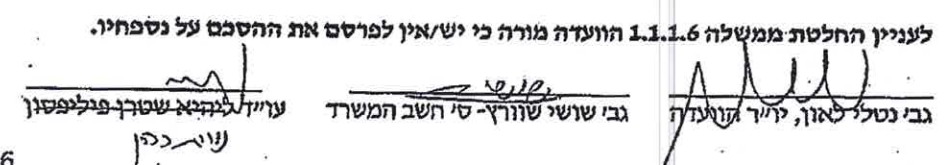 לעניין החלטת ממשלה 1.1.1.6 הוועדה מורה כי יש/אין לפרסם את ההסכם על נספחיו.
גבי נטלי לאון, יו״ר הוועדה גבי שושי שוורץ- סי חשב המשרד עו״ד ליהיא שטרן פיליפסון
6